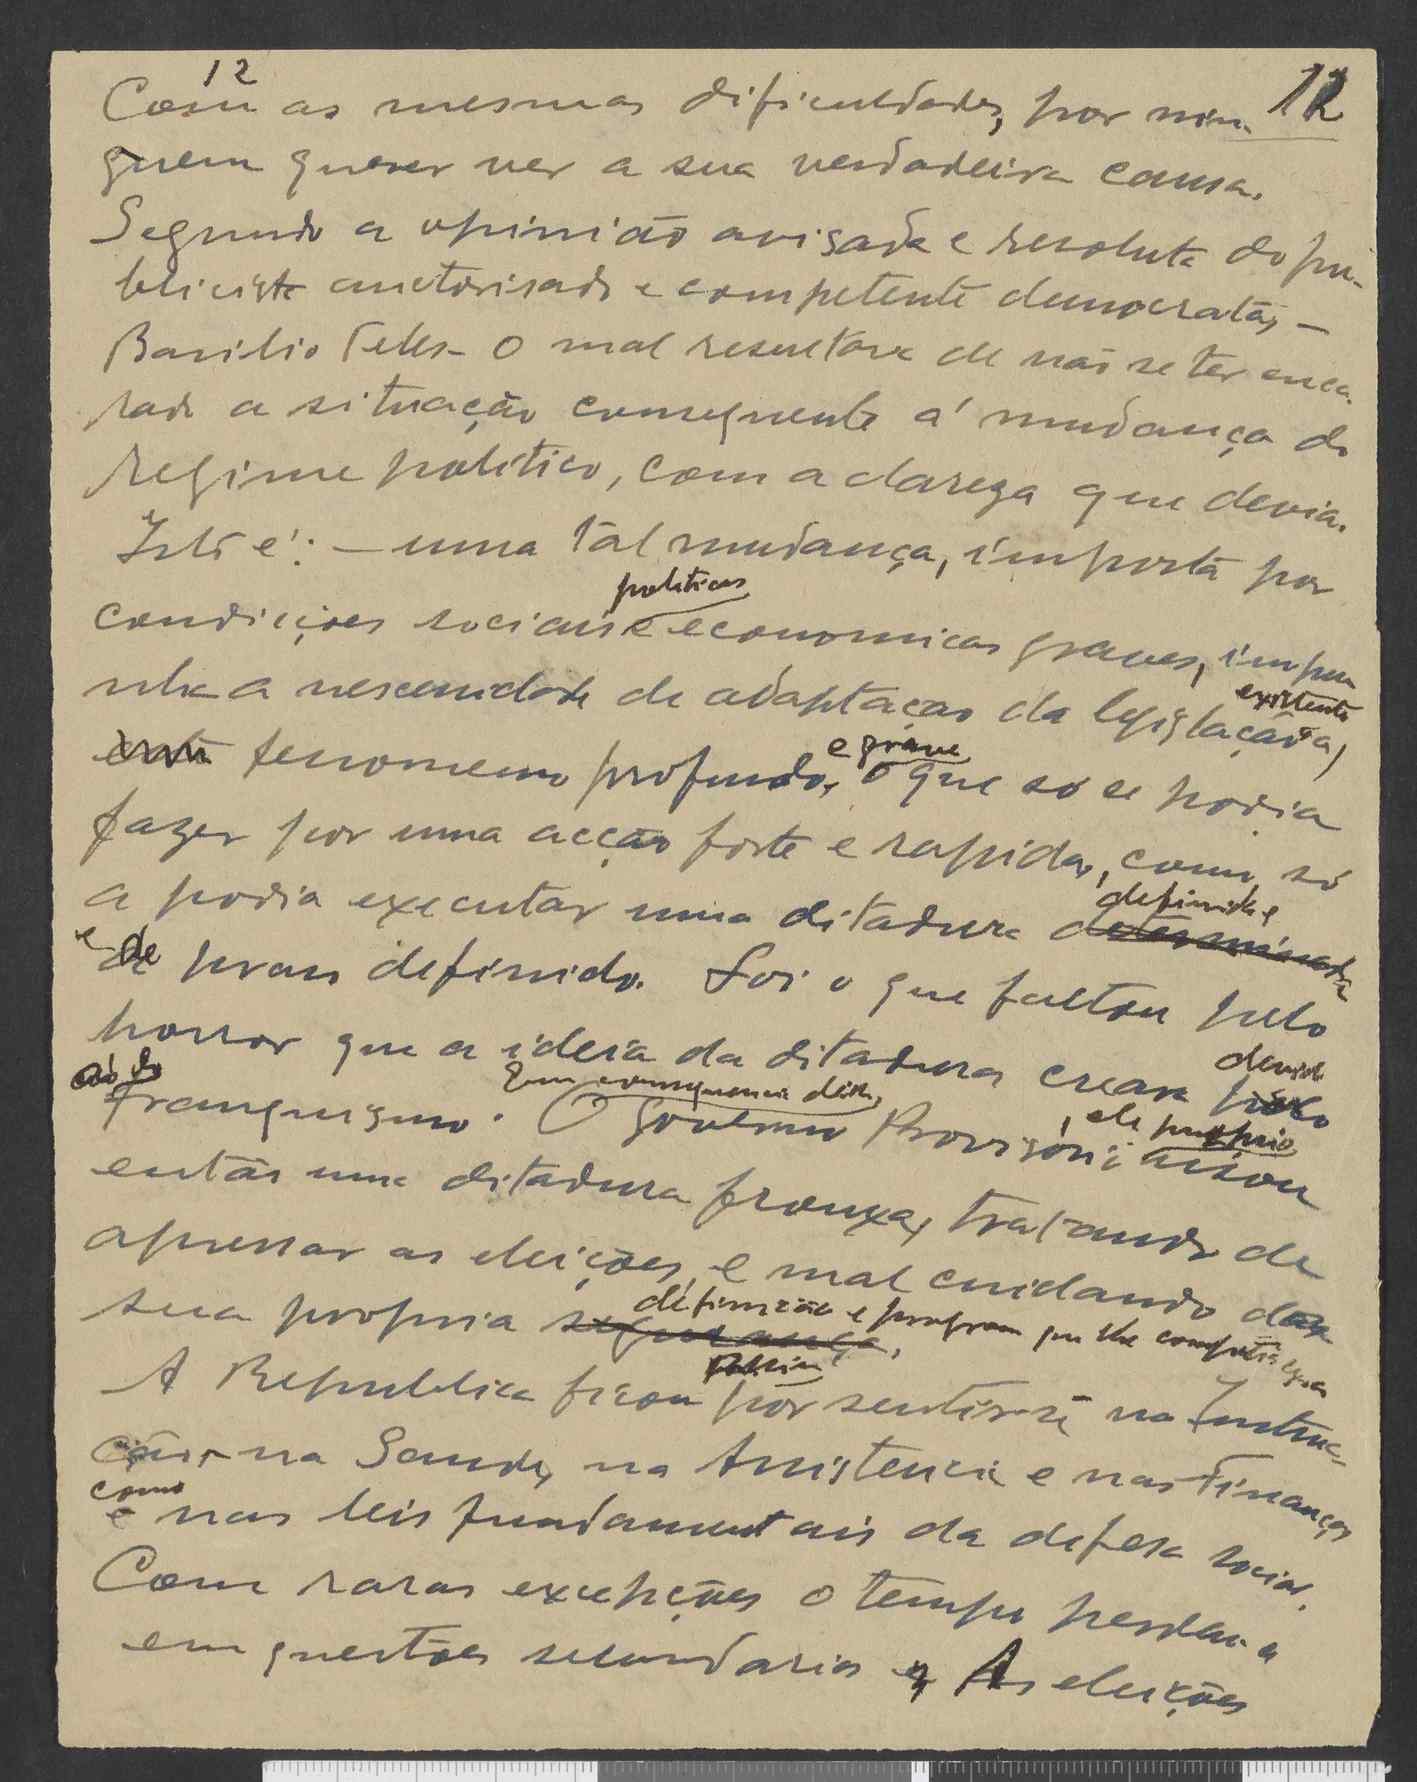 12
12
Com as mesmas dificuldades, por nin-
guem querer ver a sua verdadeira causa.
Segundo a opinião avisada e resoluta do pu-
blicista auctorisado e competente democrata, —
Basilio Teles — o mal resultara de não se ter enca-
rado a situação consequente á mudança do
regime politico, com a clareza que devia.
Isto é: — uma tal mudança, importa por
politicas
condições sociais e economicas graves, impu
nha a nescenidade de adaptação da legislação a,
existente
este fenomeno profundo, o que só se podia
e grave
fazer por uma acção forte e rapida, como só
a podia executar uma ditadura determinada
definida e
e de prau definido. Foi o que faltou pelo
horror que a ideia da ditadura creara pelo
devido
ao do
franquismo. O governo Provisorio usou
Em consequencia disto,
, ele proprio
então uma ditadura frouxa, tratando de
apressar as eleições, e mal cuidando da
sua propria segurança.
definição e program que lhe competia
A Republica ficou por sentir-se na Instruc-
ção, na Saude, na Assistencia e nas Finanças
como
e nas leis fundamentais da defesa social.
Com raras excepções o tempo perdera
em questões secundarias e, As eleições